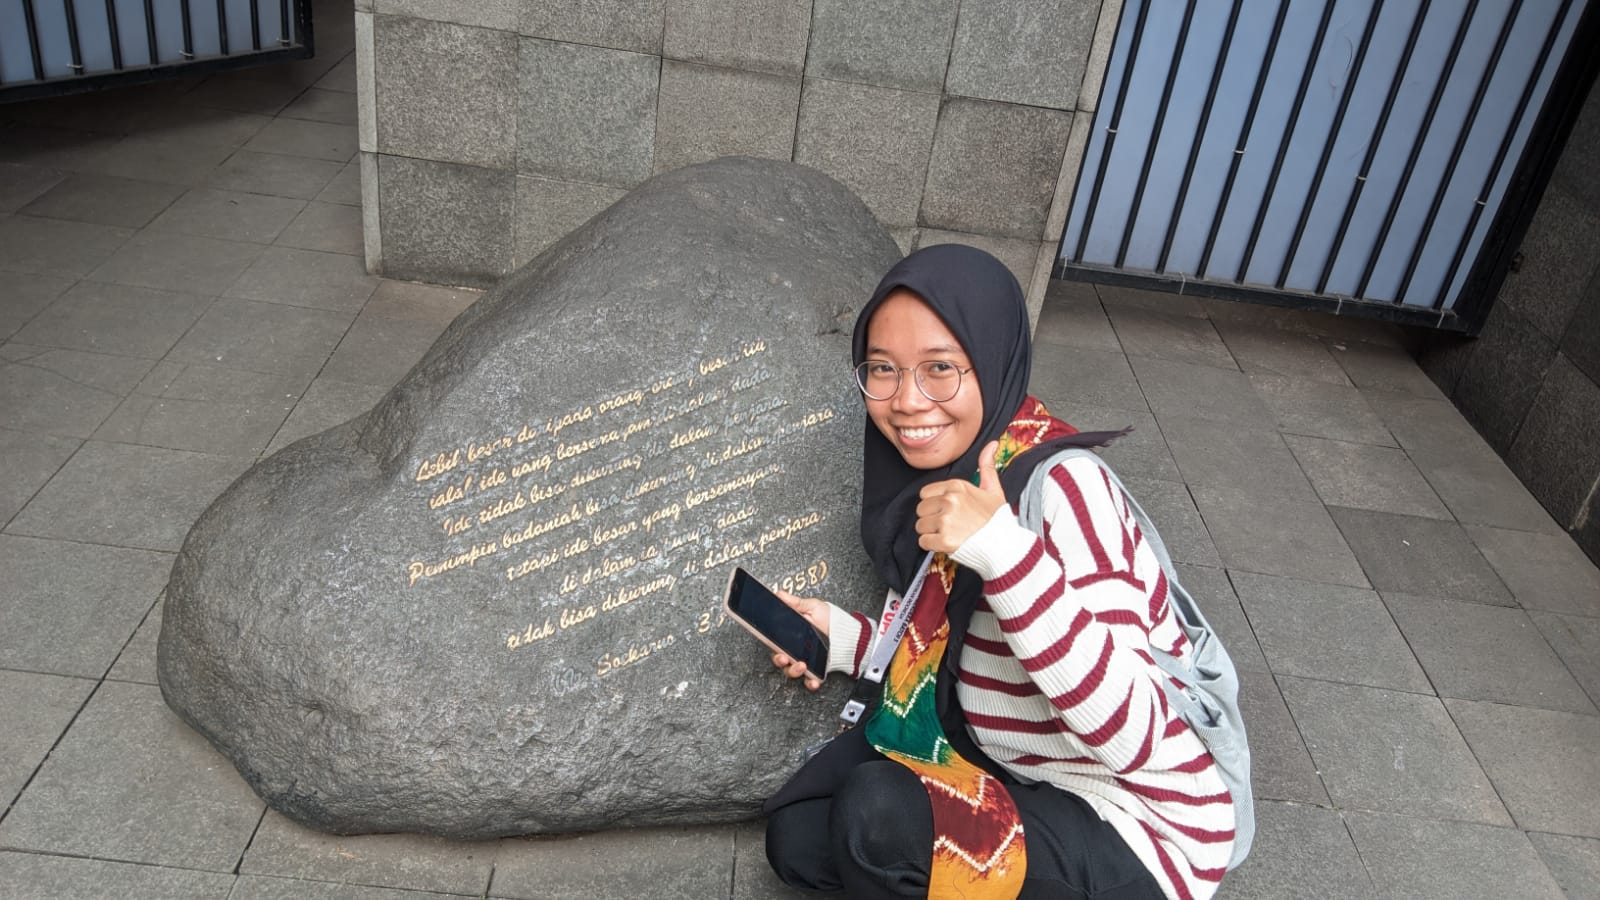 Lebih besar daripada orang-orang besar itu
ialah ide yang bersemayam di dalam dada
Ide tidak bisa dikurung di dalam penjara.
Pemimpin badaniah bisa dikurung di dalam penjara
tetapi ide besar yang bersemayam
di dalam ia punya dada
tidak bisa dikurung di dalam penjara.
Soekarno - 3 1958)
UPI